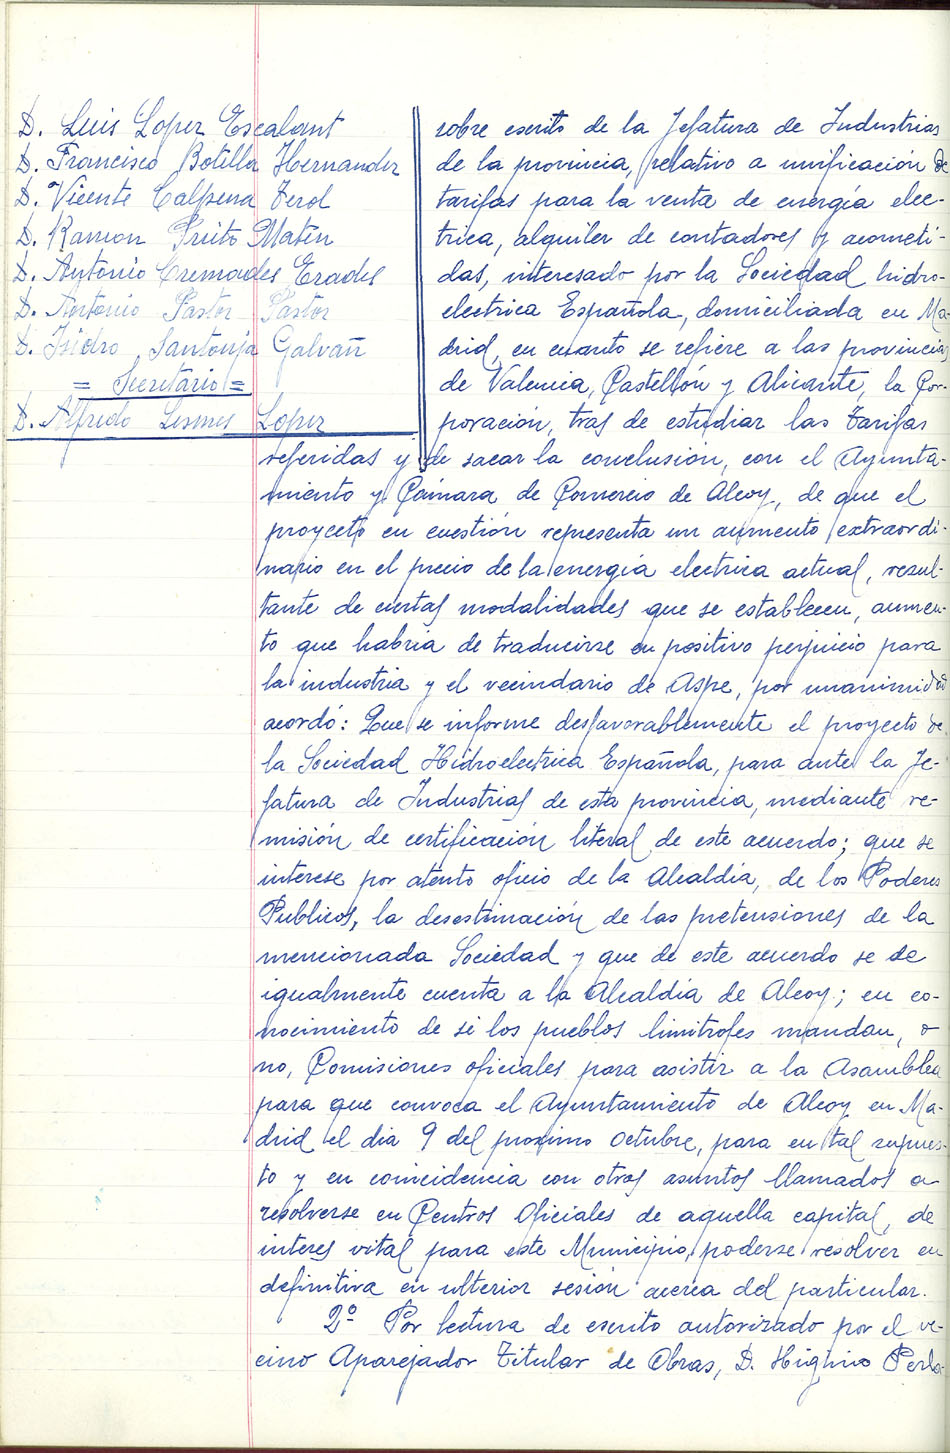 D. Luis Lopez Escalant
D. Francisco Botella Hernandez
D. Vicente Calpena Terol
D. Ramon Prieto Matin
D. Antonio Cremades Erades
D. Antonio Pastor Pastor
D. Isidro Santonja Galvañ
= Secretario =
D. Alfredo Lesmes Lopez
sobre escrito de la Jefatura de Industrias
de la provincia, relativo a unificación de
tarifas para la venta de energía elec-
trica, alquiler de contadores y acometi-
das, interesado por la Sociedad hidro-
electrica Española, domiciliada en Ma-
drid, en cuanto se refiere a las provincias
de Valencia, Castellón y Alicante, la Cor-
poración, tras de estudiar las tarifas
referidas y de sacar la conclusion, con el Ayunta-
miento y Cámara de Comercio de Alcoy, de que el
proyecto en cuestión representa un aumento extraordi-
nario en el precio de la energia electrica actual, resul-
tante de ciertas modalidades que se establecen, aumen-
to que habria de traducirse en positivo perjuicio para
la industria y el vecindario de Aspe, por unanimidad
acordó: Que se informe desfavorablemente el proyecto de
la Sociedad Hidroelectrica Española, para ante la Je-
fatura de Industrias de esta provincia, mediante re-
misión de certificación literal de este acuerdo; que se
interese por atento oficio de la Alcaldia, de los Poderes
Publicos, la desestimación de las pretensiones de la
mencionada Sociedad y que de este acuerdo se de
igualmente cuenta a la Alcaldia de Alcoy; en co-
nocimiento de si los pueblos limitrofes mandan, o
no, Comisiones oficiales para asistir a la Asamblea
para que convoca el Ayuntamiento de Alcoy en Ma-
drid el dia 9 del proximo Octubre, para en tal supues-
to y en coincidencia con otros asuntos llamados a
resolverse en Centros Oficiales de aquella capital, de
interes vital para este Municipio, poderse resolver en
definitiva en ulterior sesión acerca del particular.
2º Por lectura de escrito autorizado por el ve-
cino Aparejador Titular de Obras, D. Higinio Perlo-